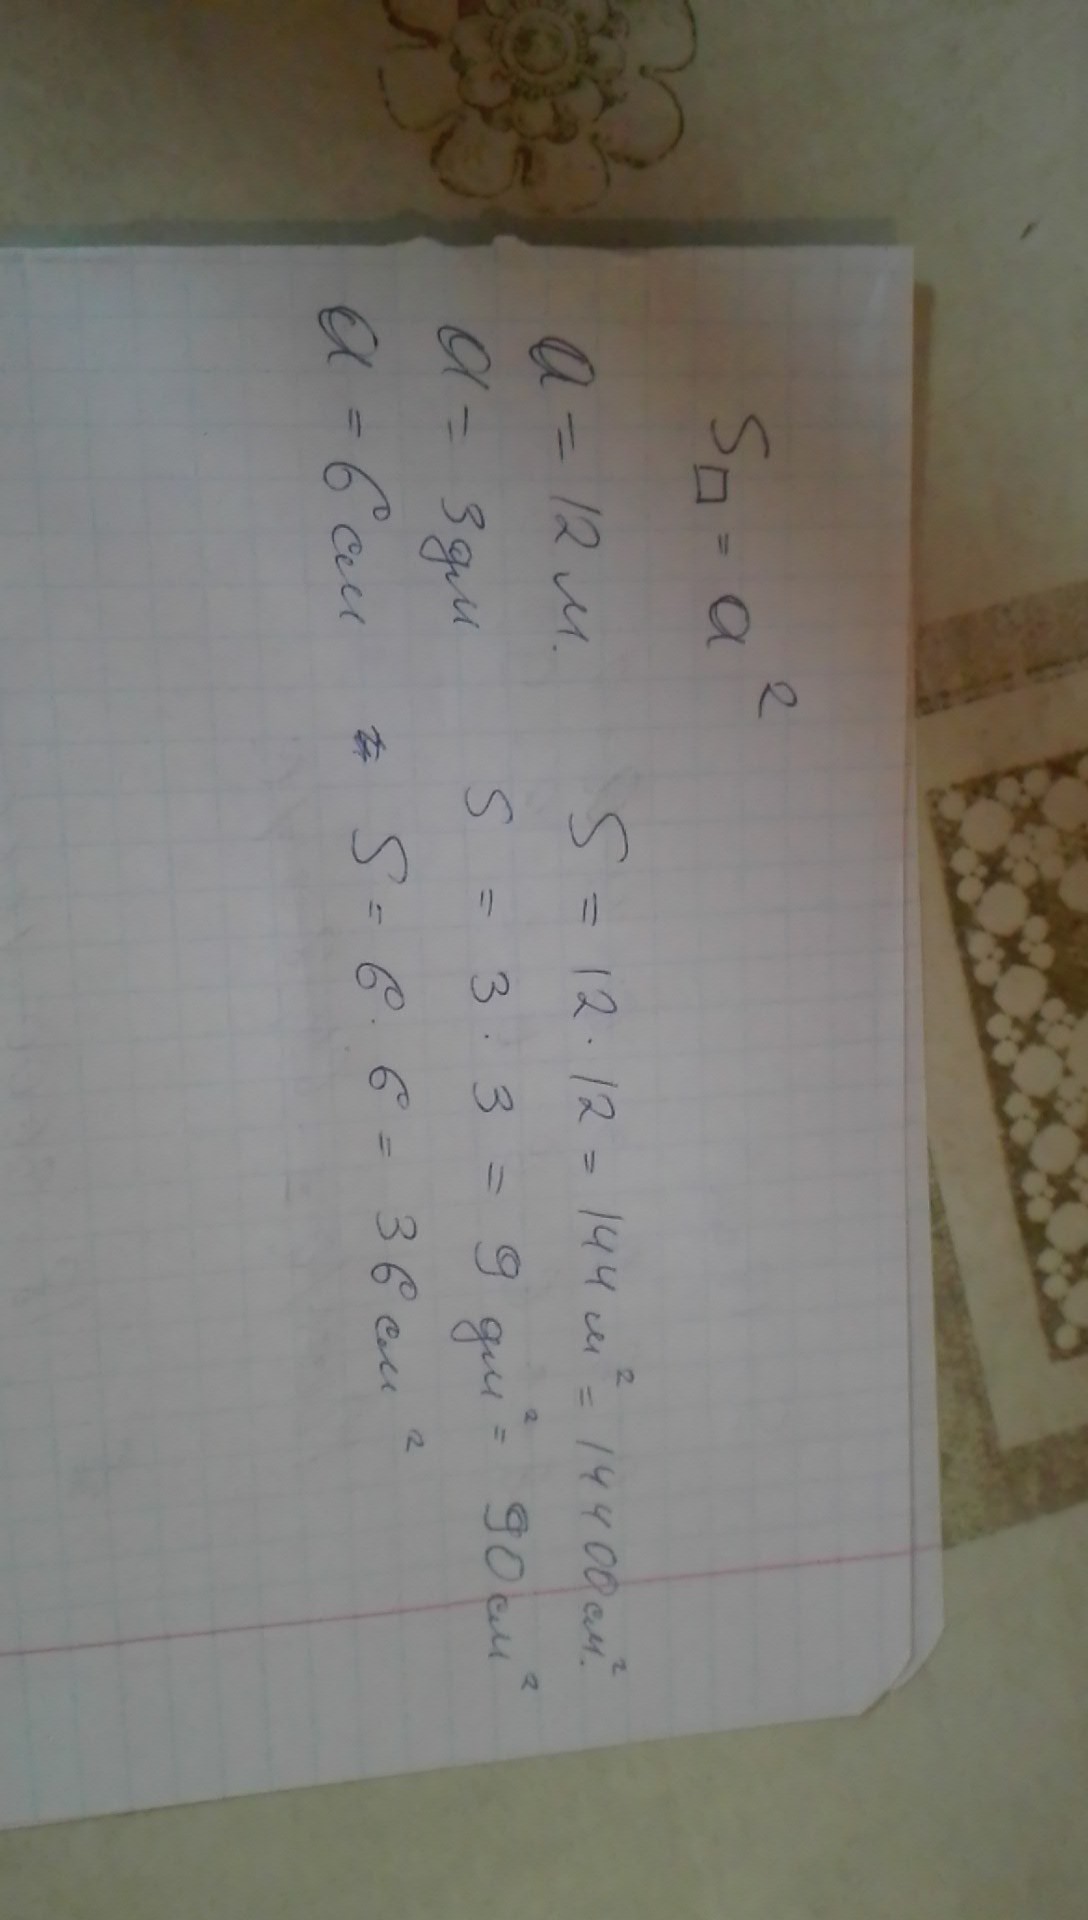 S□ = a²
a = 12 м. S = 12 · 12 = 144 м² = 14400 см.²
a = 3 дм S = 3 · 3 = 9 дм² = 90 см²
a = 6 см S = 6 · 6 = 36 см²